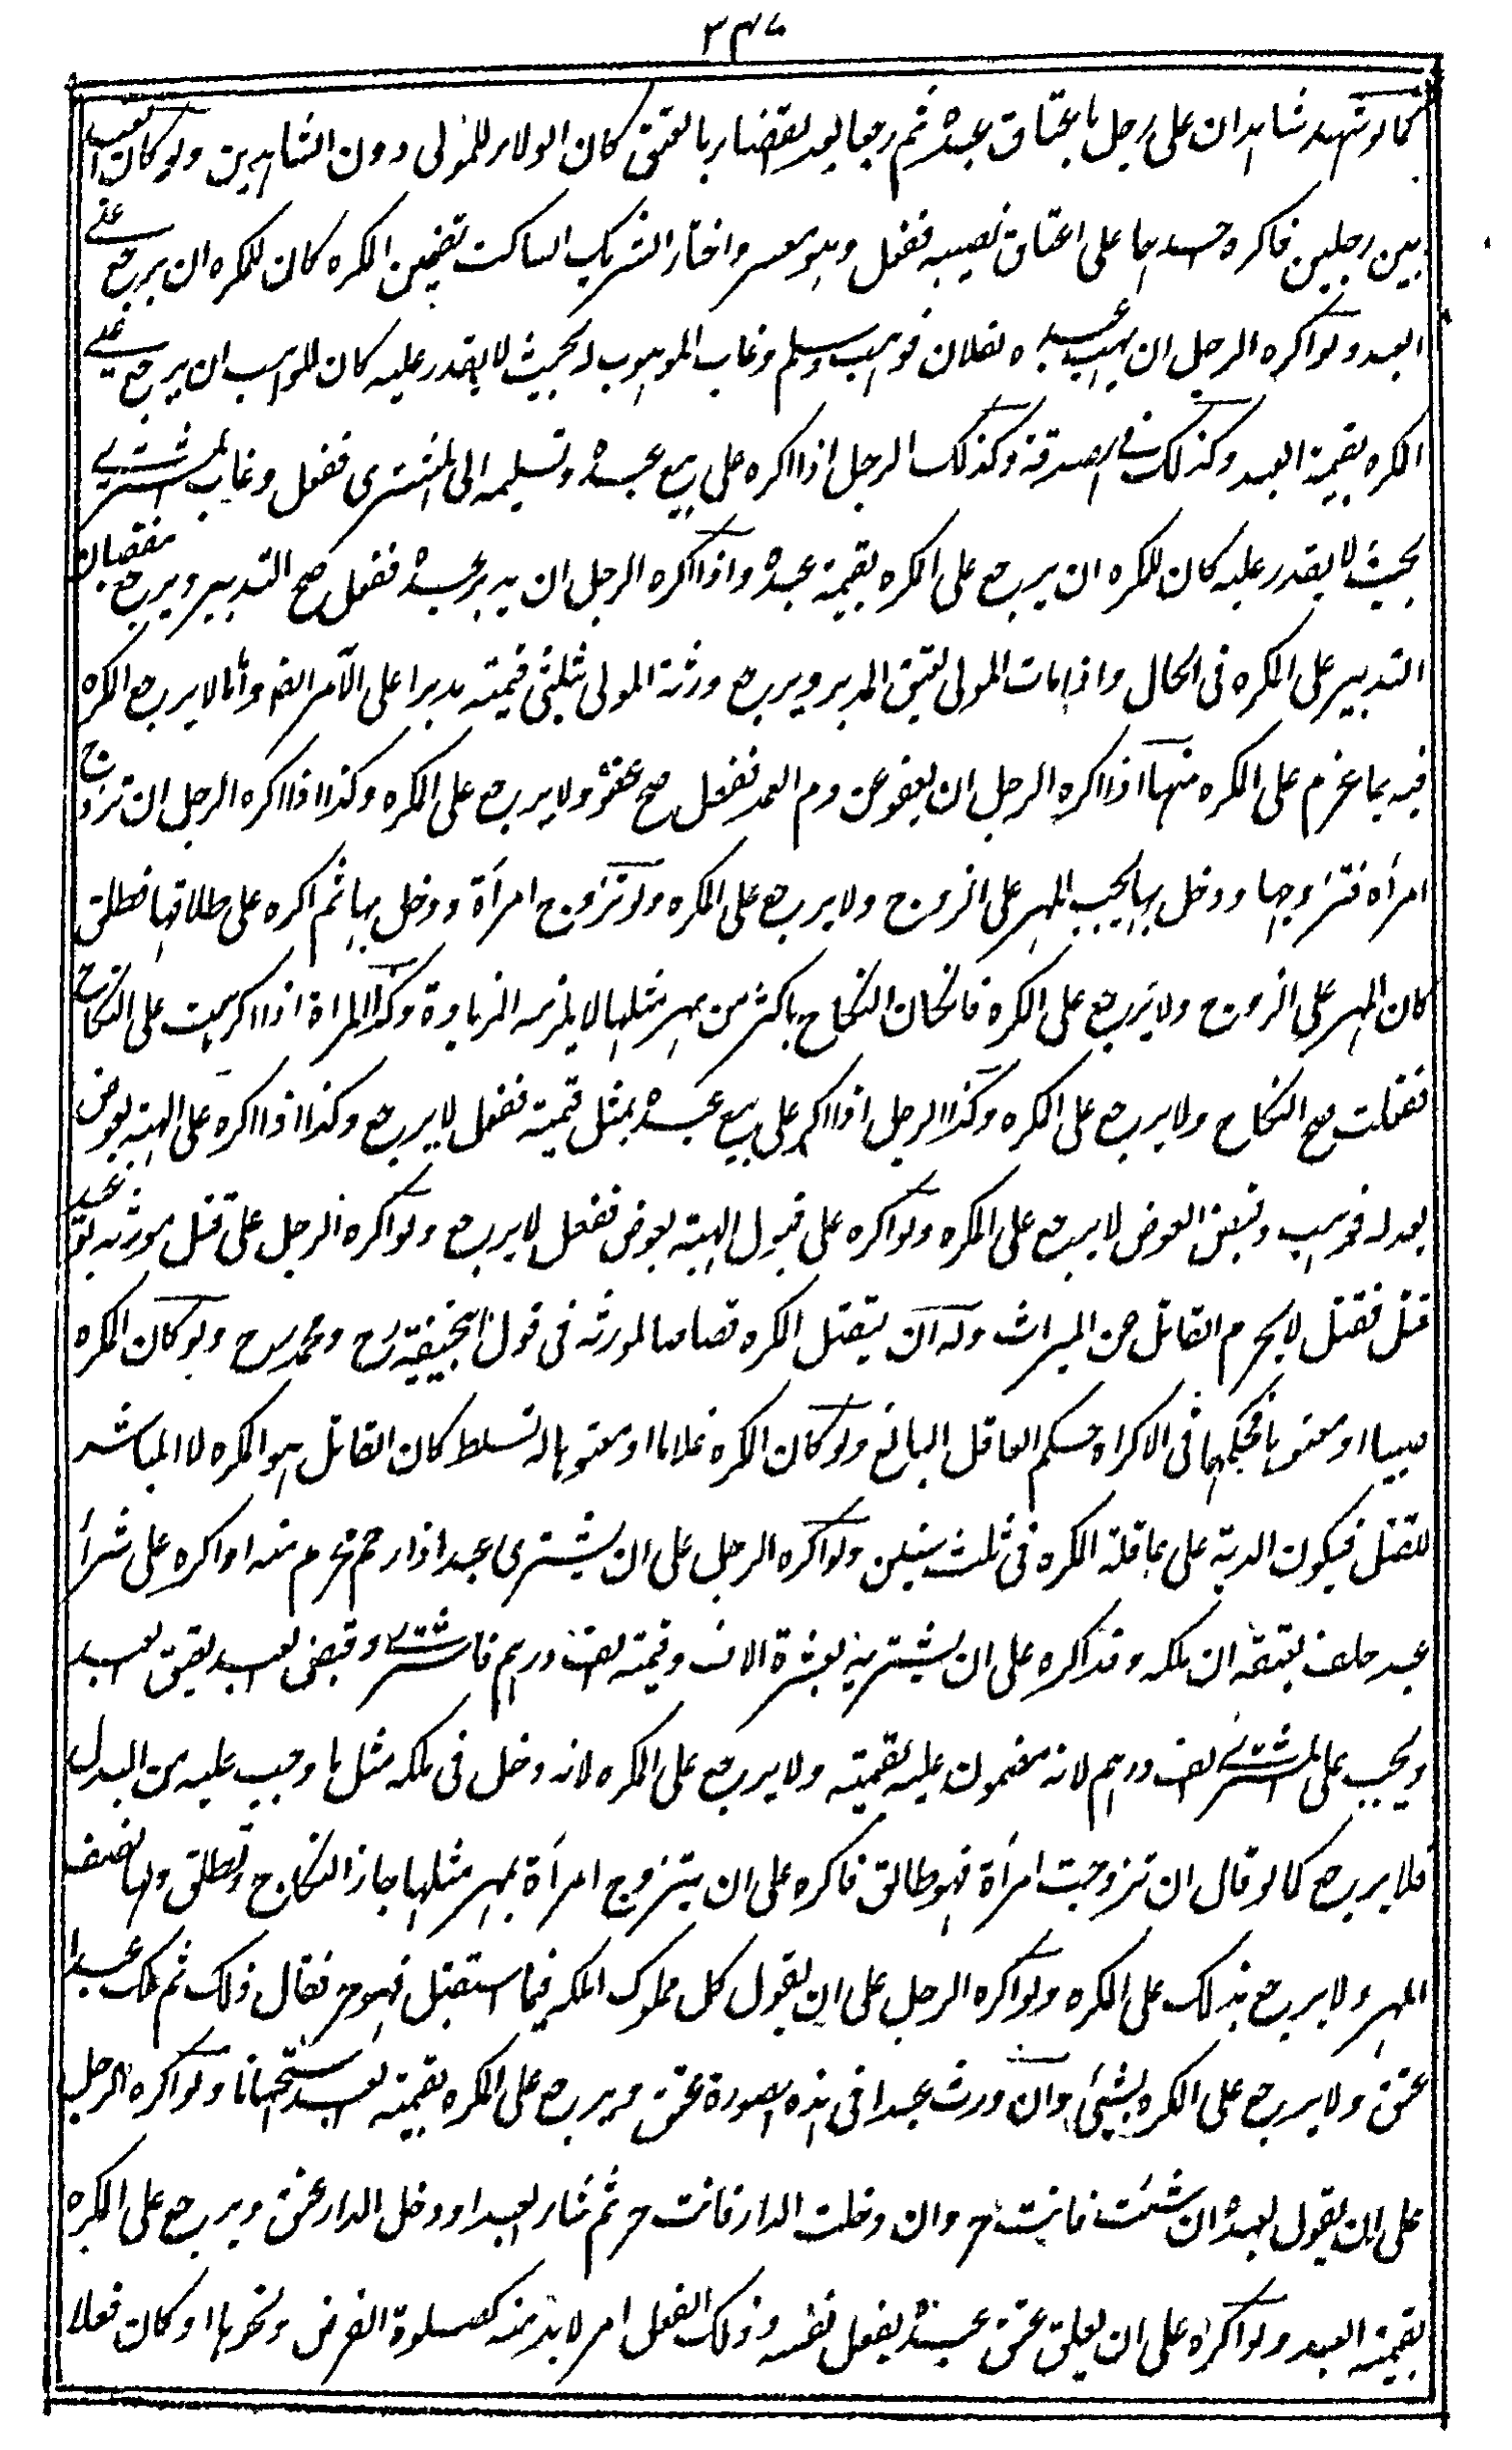 ٣٤٧
كما لو شهد شاهدان على رجل باعتاق عبده ثم رجعا بعد القضاء بالعتق كان الولاء للمولى دون الشاهدين ولو كان العبد
بين رجلين فاكره احدهما على اعتاق نصيبه ففعل وهو معسر واختار الشريك الساكت تضمين المكره كان للمكره ان يرجع على
العبد ولو اكره الرجل ان يهب عبده لفلان فوهب وسلم وغاب الموهوب له بحيث لا يقدر عليه كان للواهب ان يرجع على
المكره بقيمة العبد وكذلك في الصدقة وكذلك الرجل اذا اكره على بيع عبده وتسليمه الى المشترى ففعل وغاب المشترى
بحيث لا يقدر عليه كان للمكره ان يرجع على المكره بقيمة عبده واذا اكره الرجل ان يدبر عبده ففعل صح التدبير ويرجع بنقصان
التدبير على المكره فى الحال واذا مات المولى يعتق المدبر ويرجع ورثة المولى بثلثى قيمته مدبرا على الآمر ايضا واما لا يرجع المكره
فيه بما غرم على المكره منها اذا اكره الرجل ان يعفو عن دم العمد ففعل صح عفوه ولا يرجع على المكره وكذا اذا اكره الرجل ان تزوج
امرأه فتزوجها ودخل بها يجب المهر على الزوج ولا يرجع على المكره ولو تزوج امرأة ودخل بها ثم اكره على طلاقها فطلق
كان المهر على الزوج ولا يرجع على المكره فان كان النكاح باكثر من مهر مثلها لا يلزمه الزيادة وكذا المراة اذا اكرهت على النكاح
ففعلت صح النكاح ولا يرجع على المكره وكذا الرجل اذا اكره على بيع عبده بمثل قيمته ففعل لا يرجع وكذا اذا اكره على الهبة بعوض
يعدله فوهب وقبض العوض لا يرجع على المكره ولو اكره على قبول الهبة بعوض ففعل لا يرجع ولو اكره الرجل على قتل مورثه بوعيد
قتل فقتل لا يحرم القاتل عن الميراث وله ان يقتل المكره قصاصا لمورثه فى قول ابيحنيفة رح ومحمد رح ولو كان المكره
صبيا او معتوها فحكمهما فى الاكراه حكم العاقل البالغ ولو كان المكره غلاما او معتوها له تسلط كان القاتل هو المكره لا المباشر
للقتل فيكون الدية على عاقلة المكره فى ثلث سنين ولو اكره الرجل على ان يشترى عبدا ذا رحم محرم منه او اكره على شراء
عبد حلف بعتقه ان ملكه وقد اكره على ان يشتريه بعشرة الاف وقيمته الف درهم فاشترى وقبض العبد يعتق العبد
ويجب على المشترى الف درهم لانه مضمون عليه بقيمته ولا يرجع على المكره لانه دخل فى ملكه مثل ما وجب عليه من البدل
فلا يرجع كما لو قال ان تزوجت امرأة فهو طالق فاكره على ان يتزوج امرأة بمهر مثلها جاز النكاح وتطلق ولها نصف
المهر ولا يرجع بذلك على المكره ولو اكره الرجل على ان يقول كل مملوك املكه فيما استقبل فهو حر فقال ذلك ثم ملك عبدا
عتق ولا يرجع على المكره بشئ وان ورث عبدا فى هذه الصورة عتق ويرجع على المكره بقيمة العبد استحسانا ولو اكره الرجل
على ان يقول لعبده ان شئت فانت حر وان دخلت الدار فانت حر ثم شاء العبد او دخل الدار عتق ويرجع على المكره
بقيمة العبد ولو اكره على ان يعلق عتق عبده بفعل نفسه وذلك الفعل امر لا بد منه كصلوة الفرض ونحوها او كان فعلا